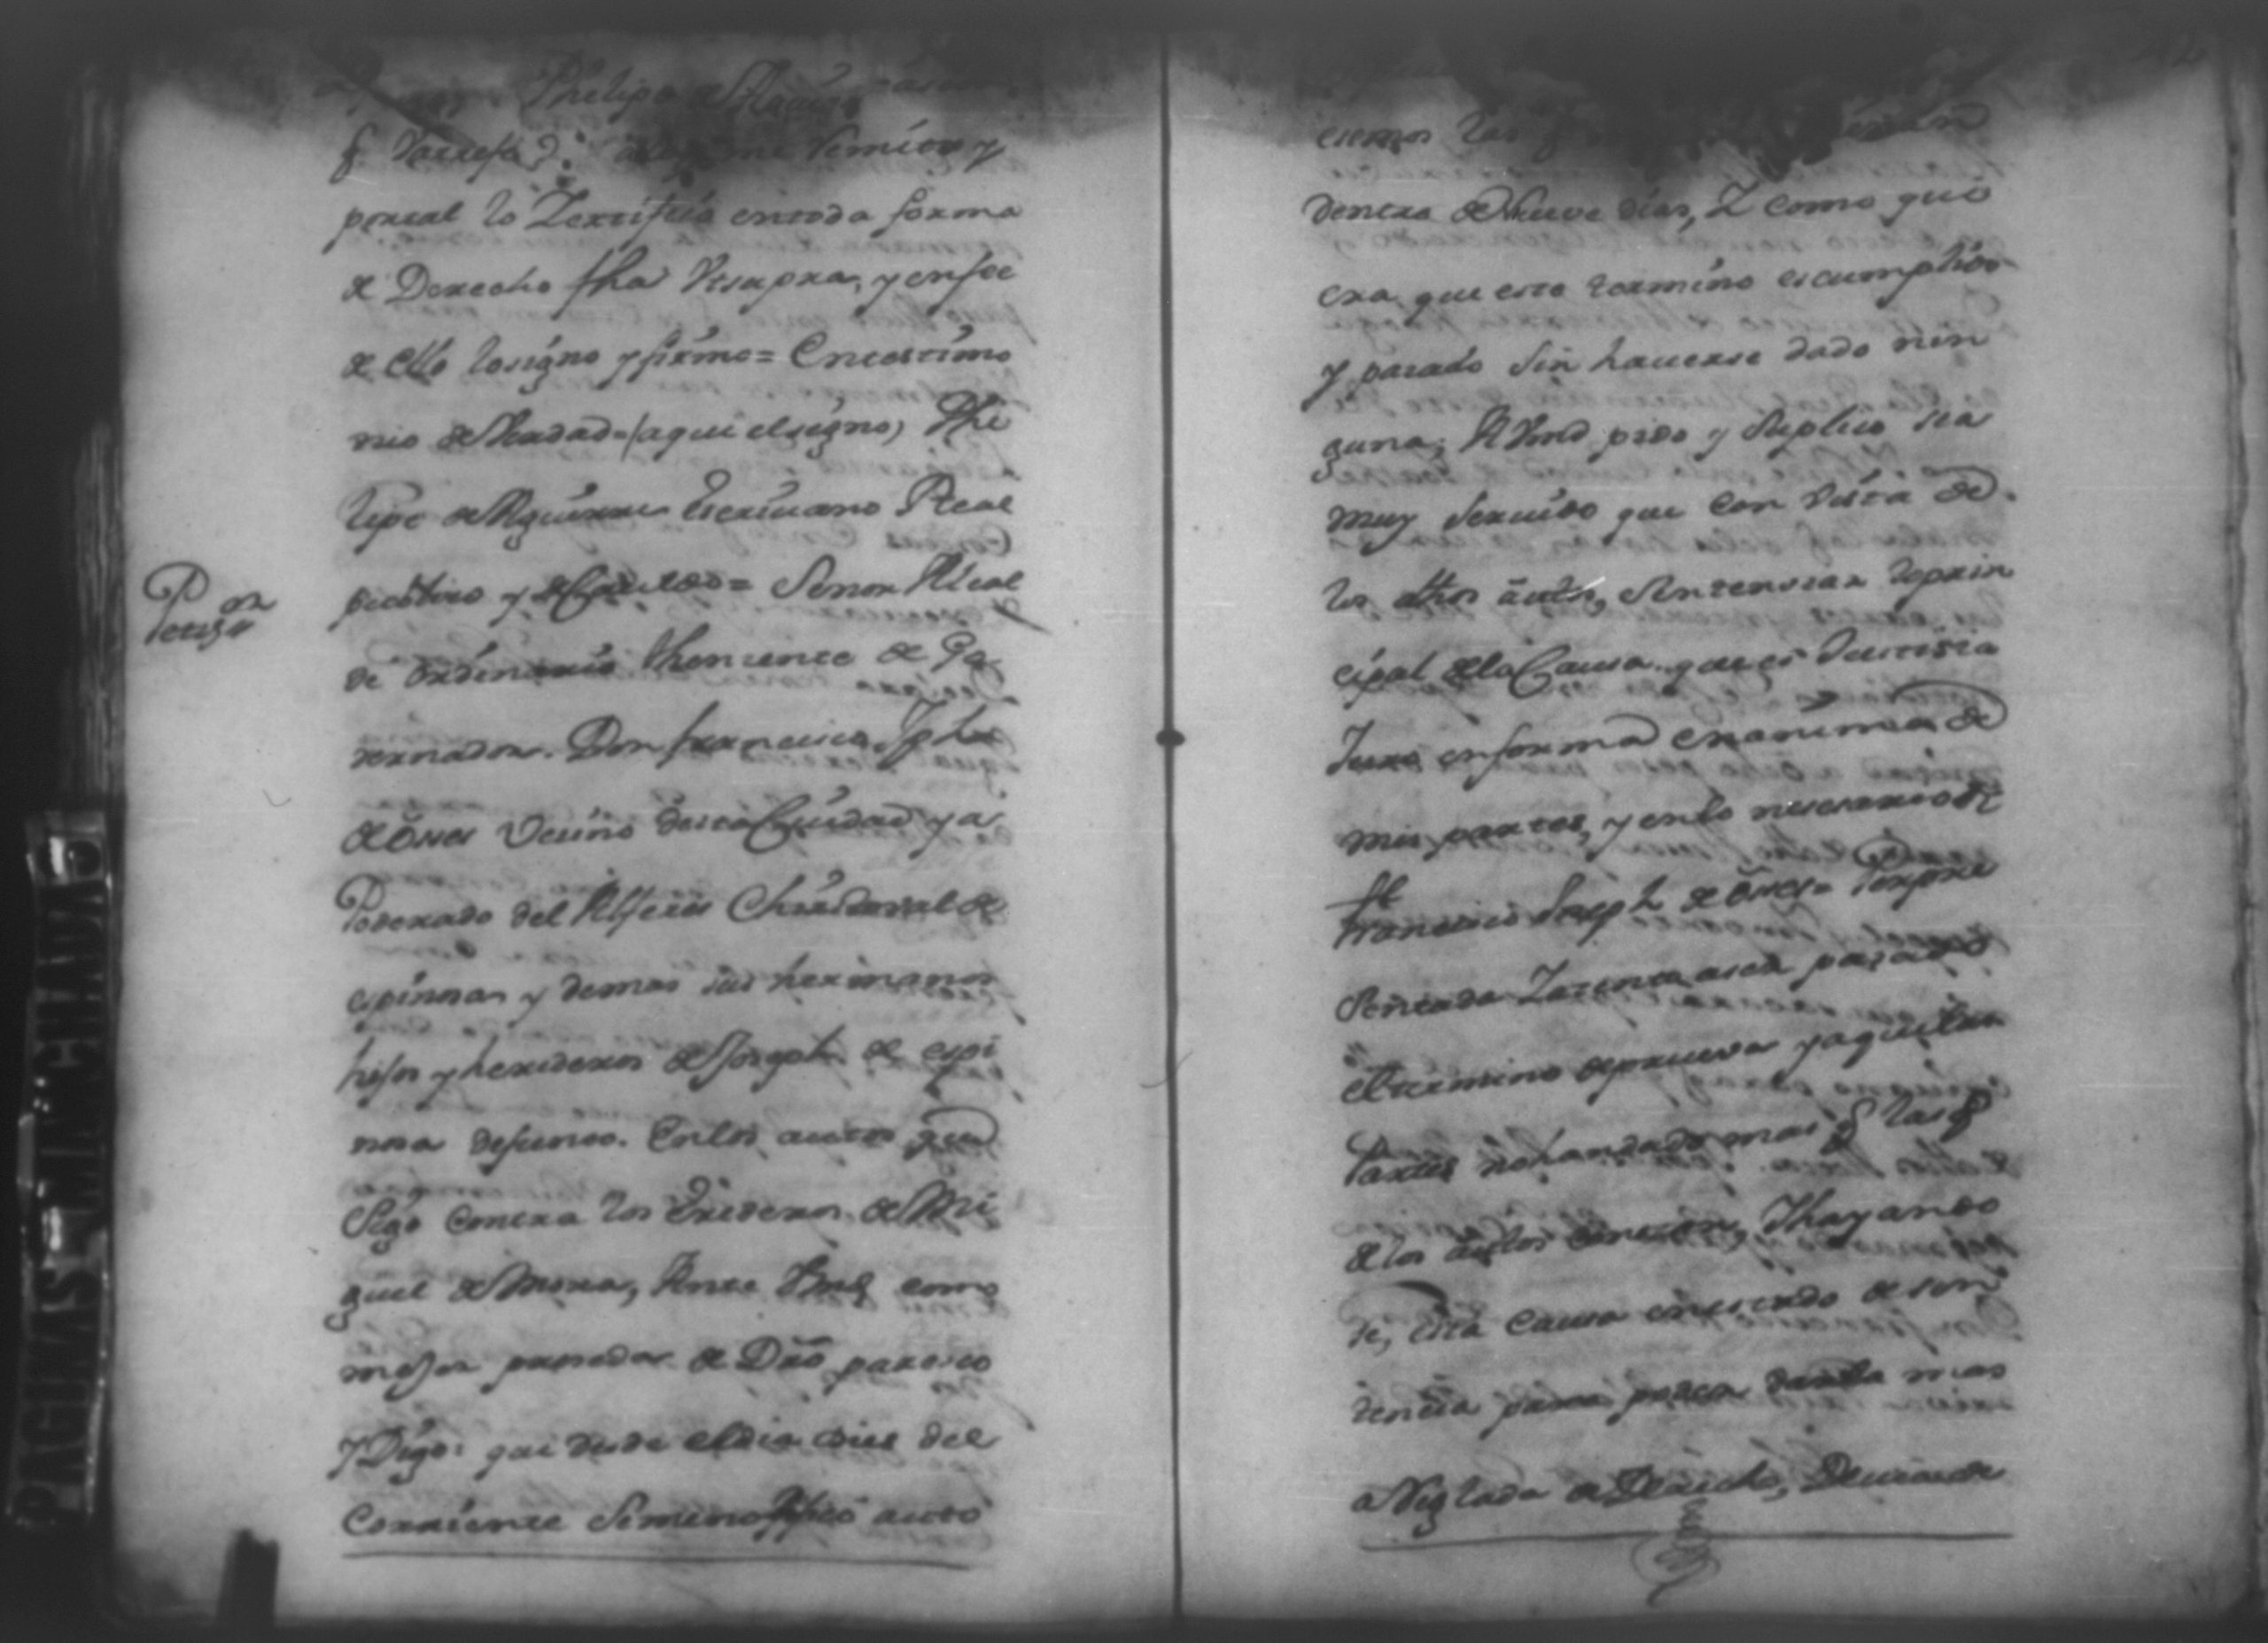 Phelipe de Aguirre
por tal lo Zertifico en toda forma
de Derecho fha Vtsupra, y enfee
de ello lo signo y firmo = En testimo
nio de Verdad = (aqui el signo) Phe
lipe de Aguirre Escriuano Real
publico y de Cauildo = Señor Alcal
Petizon
de ordinario theniente de Go
vernador. Don francisco Jph
de Ones Vecino desta Ciudad y a
Poderado del Alferes Christoval de
espinosa y demas sus hermanos
hijos y herederos de Joseph de espi
nosa difunto. En los autos que
Sigo contra los Erederos de Mi
guel de Mora, Ante Vmd como
mejor proceda de Dro paresco
Y Digo: que desde el dia dies del
Corriente Seme notifico auto
dentro de Nueve dias, Y como que
era que este termino es cumplido
y pasado sin hauerse dado nin
guna; A Vmd pido y Suplico sea
muy Seruido que con Vista de
los dhos autos, Sentenciar lo prin
cipal de la Causa que es Justicia
Juro en forma en anima de
mis partes, y en lo nesesario &
Francisco Joseph de Ones = Por pre
Sentada Y atento a estar pasado
el termino de prueva y a que las
Partes no han dado mas q las q
de los autos constan, Y hayando
se, esta Causa en estado de sen
tencia para poder darla mas
a Reglada a Derecho,